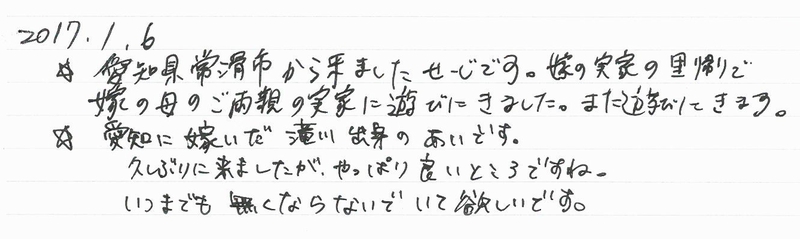 2017.1.6
☆ 愛知県常滑市から来ましたせーじです。嫁の実家の里帰りで
嫁の母のご両親の実家に遊びにきました。また遊びにきます。
☆ 愛知に嫁いだ滝川出身のあいです。
久しぶりに来ましたが、やっぱり良いところですね。
いつまでも無くならないでいて欲しいです。